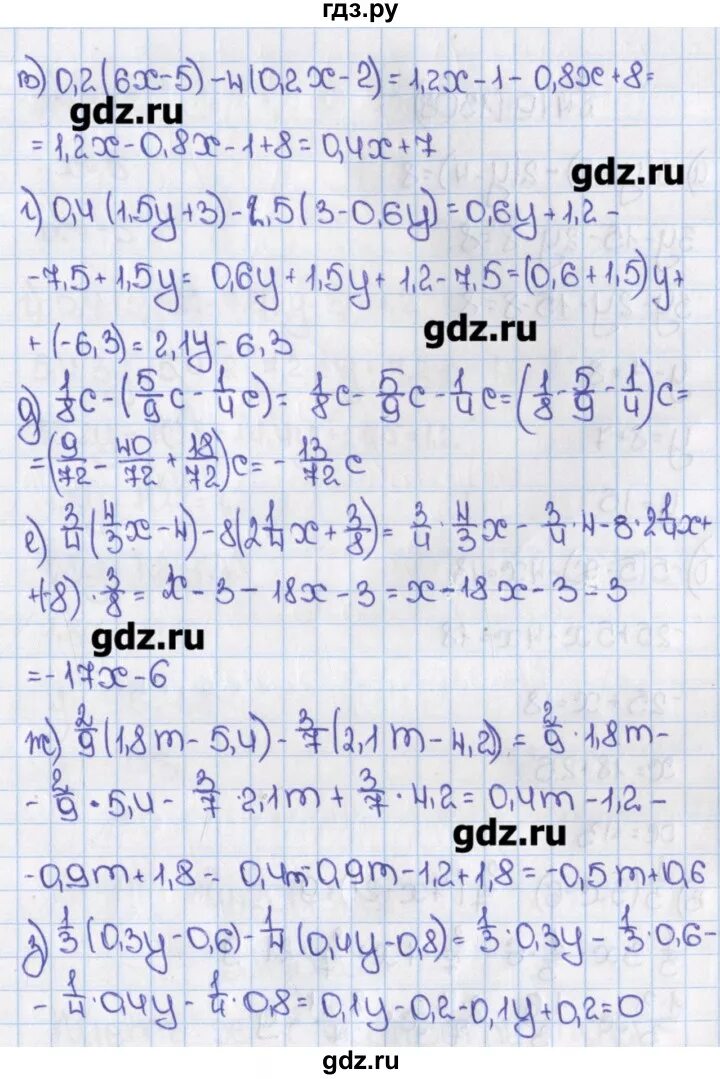 гдз.ру
в) 0,2(6x-5)-4(0,2x-2)=1,2x-1-0,8x+8=
gdz.ru
=1,2x-0,8x-1+8=0,4x+7
gdz.ru
г) 0,4(1,5y+3)-2,5(3-0,6y)=0,6y+1,2-
-7,5+1,5y= 0,6y+1,5y+1,2-7,5=(0,6+1,5)y+
gdz.ru
+(-6,3)=2,1y-6,3
д) 1/8c-(5/9c-1/4c)= 1/8c-5/9c-1/4c=(1/8-5/9-1/4)c=
=(9/72-40/72+18/72)c=-13/72c
е) 3/4(4/3x-4)-8(2 1/4x+3/8)= 3/4·4/3x-3/4·4-8·2 1/4x+
+(-8)·3/8= x-3-18x-3=x-18x-3-3
gdz.ru
=-17x-6
ж) 2/9(1,8m-5,4)-3/7(2,1m-4,2)=2/9·1,8m-
-2/9·5,4-3/7·2,1m+3/7·4,2=0,4m-1,2-
gdz.ru
-0,9m+1,8= 0,4m-0,9m-1,2+1,8=-0,5m+0,6
з) 1/3(0,3y-0,6)-1/4(0,4y-0,8)=1/3·0,3y-1/3·0,6-
-1/4·0,4y-1/4·0,8=0,1y-0,2-0,1y+0,2=0
gdz.ru